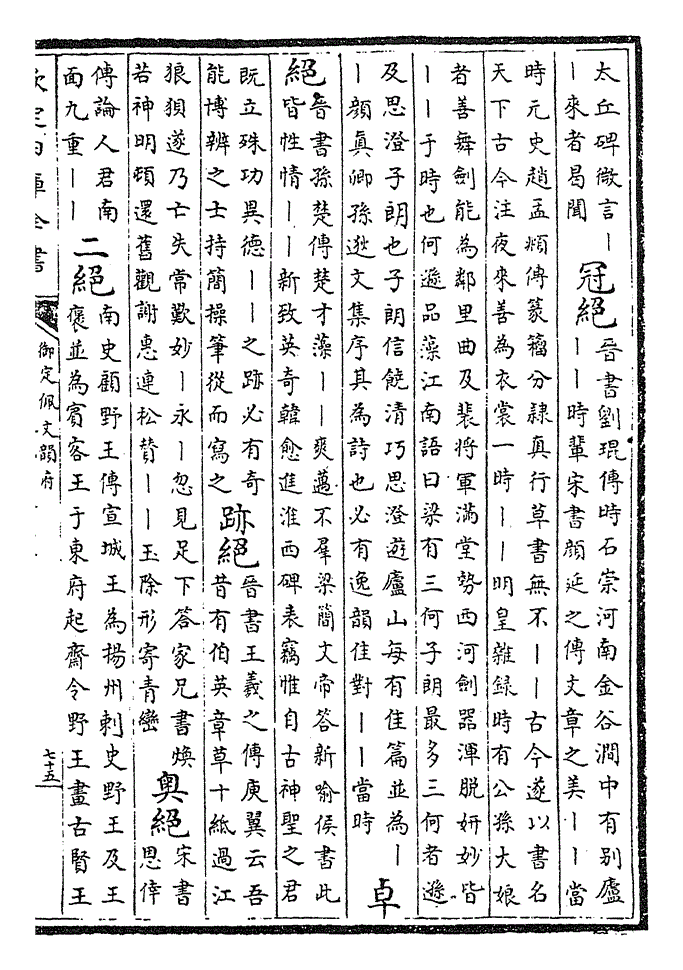 太丘碑微言丨
丨來者曷聞
冠絕
晉書劉琨傳時石崇河南金谷澗中有别廬
丨丨時輩宋書顔延之傳文章之美丨丨當
時元史趙孟頫傳篆籀分隷真行草書無不丨丨古今遂以書名
天下古今注夜來善為衣裳一時丨丨明皇雜録時有公孫大娘
者善舞劍能為鄰里曲及裴將軍滿堂勢西河劍器渾脱妍妙皆
丨丨于時也何遜品藻江南語曰梁有三何子朗最多三何者遜
及思澄子朗也子朗信饒清巧思澄遊廬山每有佳篇並為丨
丨顔真卿孫逖文集序其為詩也必有逸韻佳對丨丨當時
卓
絕
晉書孫楚傳楚才藻丨丨爽邁不羣梁簡文帝答新喻侯書此
皆性情丨丨新致英奇韓愈進淮西碑表竊惟自古神聖之君
既立殊功異德丨丨之跡必有奇
能博辨之士持簡操筆從而寫之
跡絕
晉書王羲之傳庾翼云吾
昔有伯英章草十紙過江
狼狽遂乃亡失常歎妙丨永丨忽見足下答家兄書煥
若神明頓還舊觀謝惠連松贊丨丨玉除形寄青巒
奥絕
宋書
恩倖
傳論人君南
面九重丨丨
二絕
南史顧野王傳宣城王為揚州刺史野王及王
褒並為賓客王于東府起齋令野王畫古賢王
欽定四庫全書
御定佩文韻府
七十五